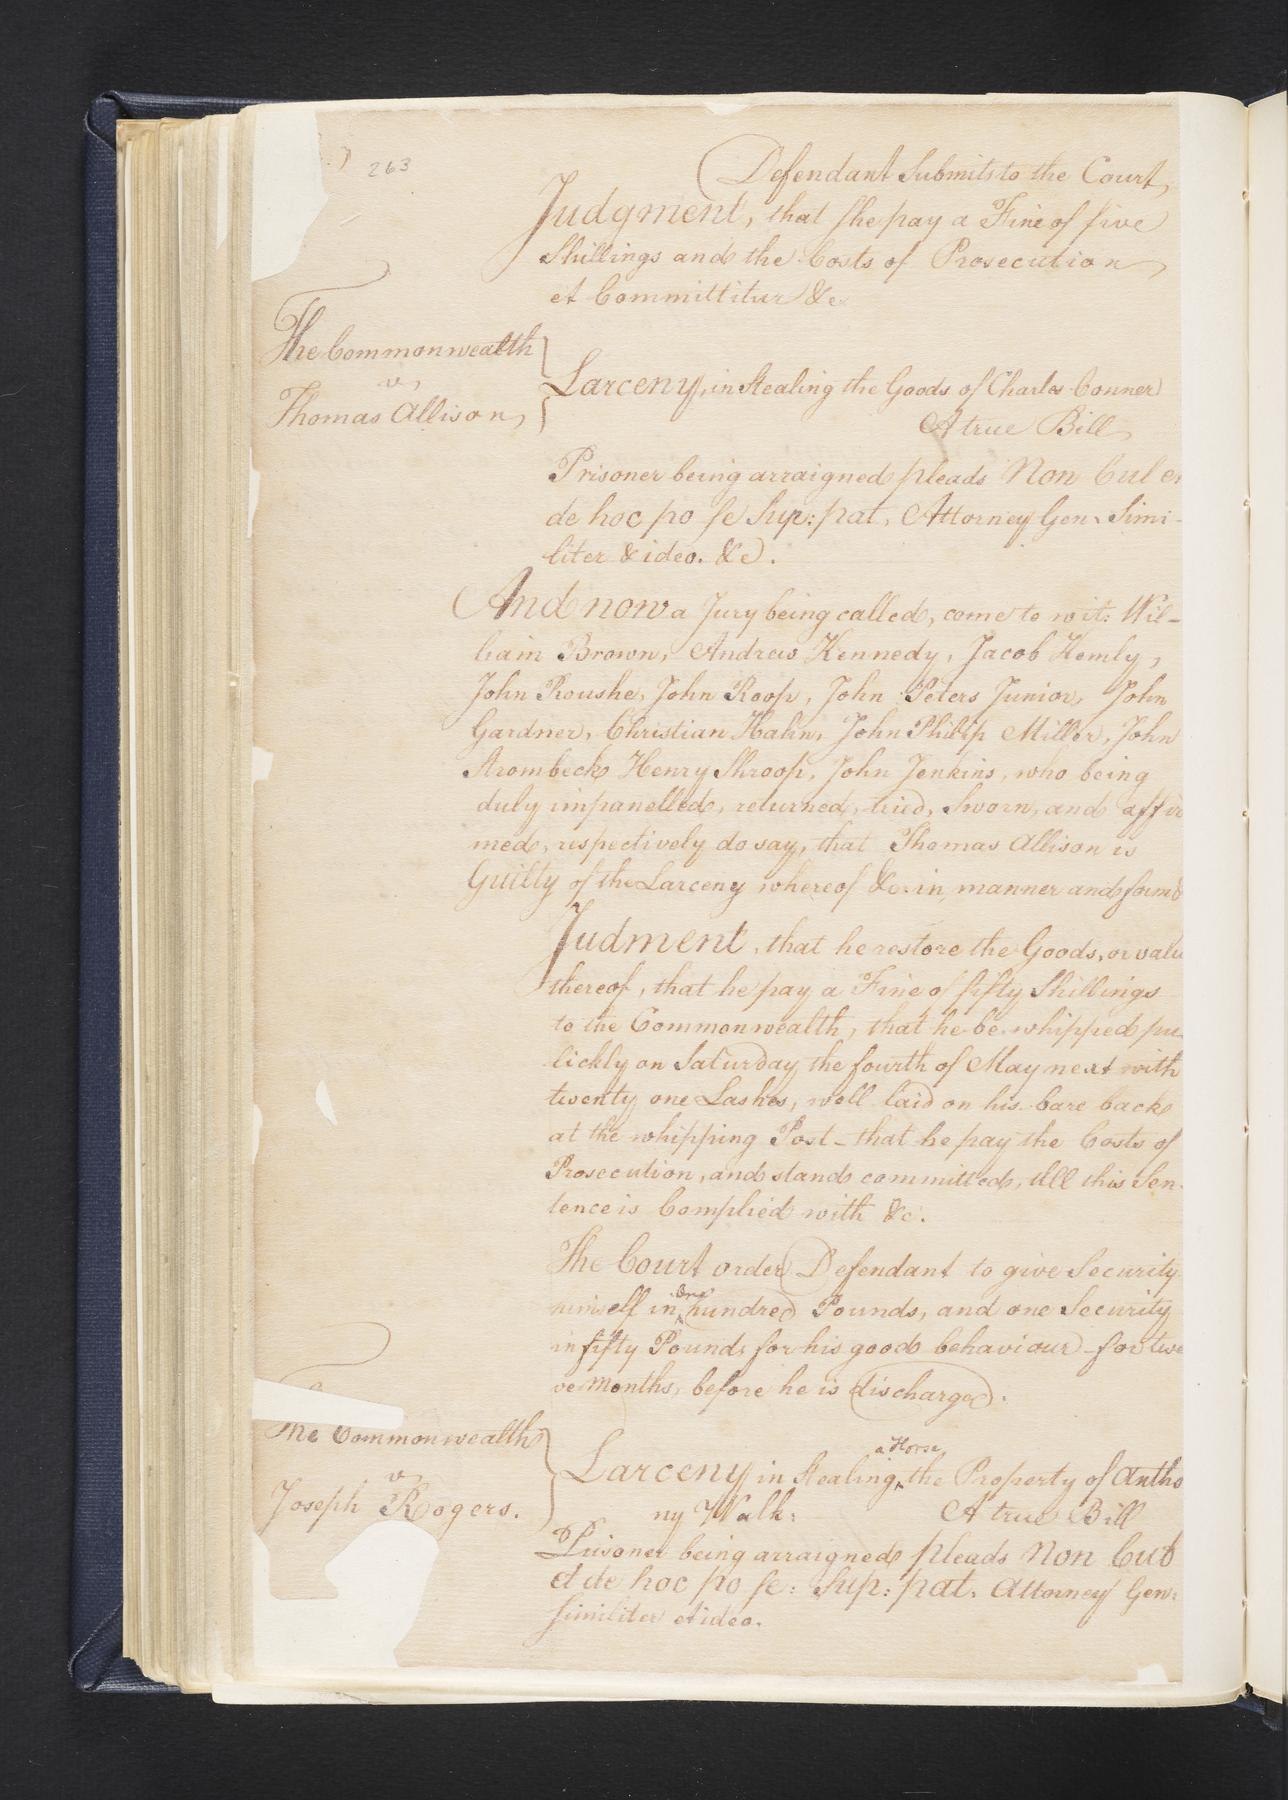 263
Defendant Submits to the Court,
Judgment, that she pay a Fine of five
Shillings and the Costs of Prosecution
et Committitur &c
The Commonwealth
v
Thomas Allison,
Larceny, in Stealing the Goods of Charles Conner
A true Bill
Prisoner being arraigned pleads Non Cul et
de hoc po se Sup: pat, Attorney Gen. Simi-
liter & ideo. &c.
And now a Jury being called, come to wit: Wil-
liam Brown, Andrew Kennedy, Jacob Hemly,
John Roushe, John Roop, John Peters Junior, John
Gardner, Christian Hahn, John Philip Miller, John
Arombeck Henry Shroop, John Jenkins, who being
duly impanelled, returned, tried, Sworn, and affir
med, respectively do say, that Thomas Allison is
Guilty of the Larceny whereof &c. in manner and form
Judment, that he restore the Goods, or valu
thereof, that he pay a Fine of fifty Shillings
to the Commonwealth, that he be whipped pu
lickly on Saturday the fourth of May next with
twenty one Lashes, well laid on his bare back
at the whipping Post - that he pay the Costs of
Prosecution, and stand committed, till this Sen
tence is Complied with &c.
The Court order Defendant to give Security
himself in one hundred Pounds, and one Security
in fifty Pounds for his good behaviour for twe
ve months, before he is discharged.
The Commonwealth
v
Joseph Rogers.
Larceny in Stealing a Horse, the Property of Antho
ny Walk:
A true Bill
Prisoner being arraigned pleads Non Cul
et de hoc po se: Sup: pat. Attorney Gen:
similiter et ideo.